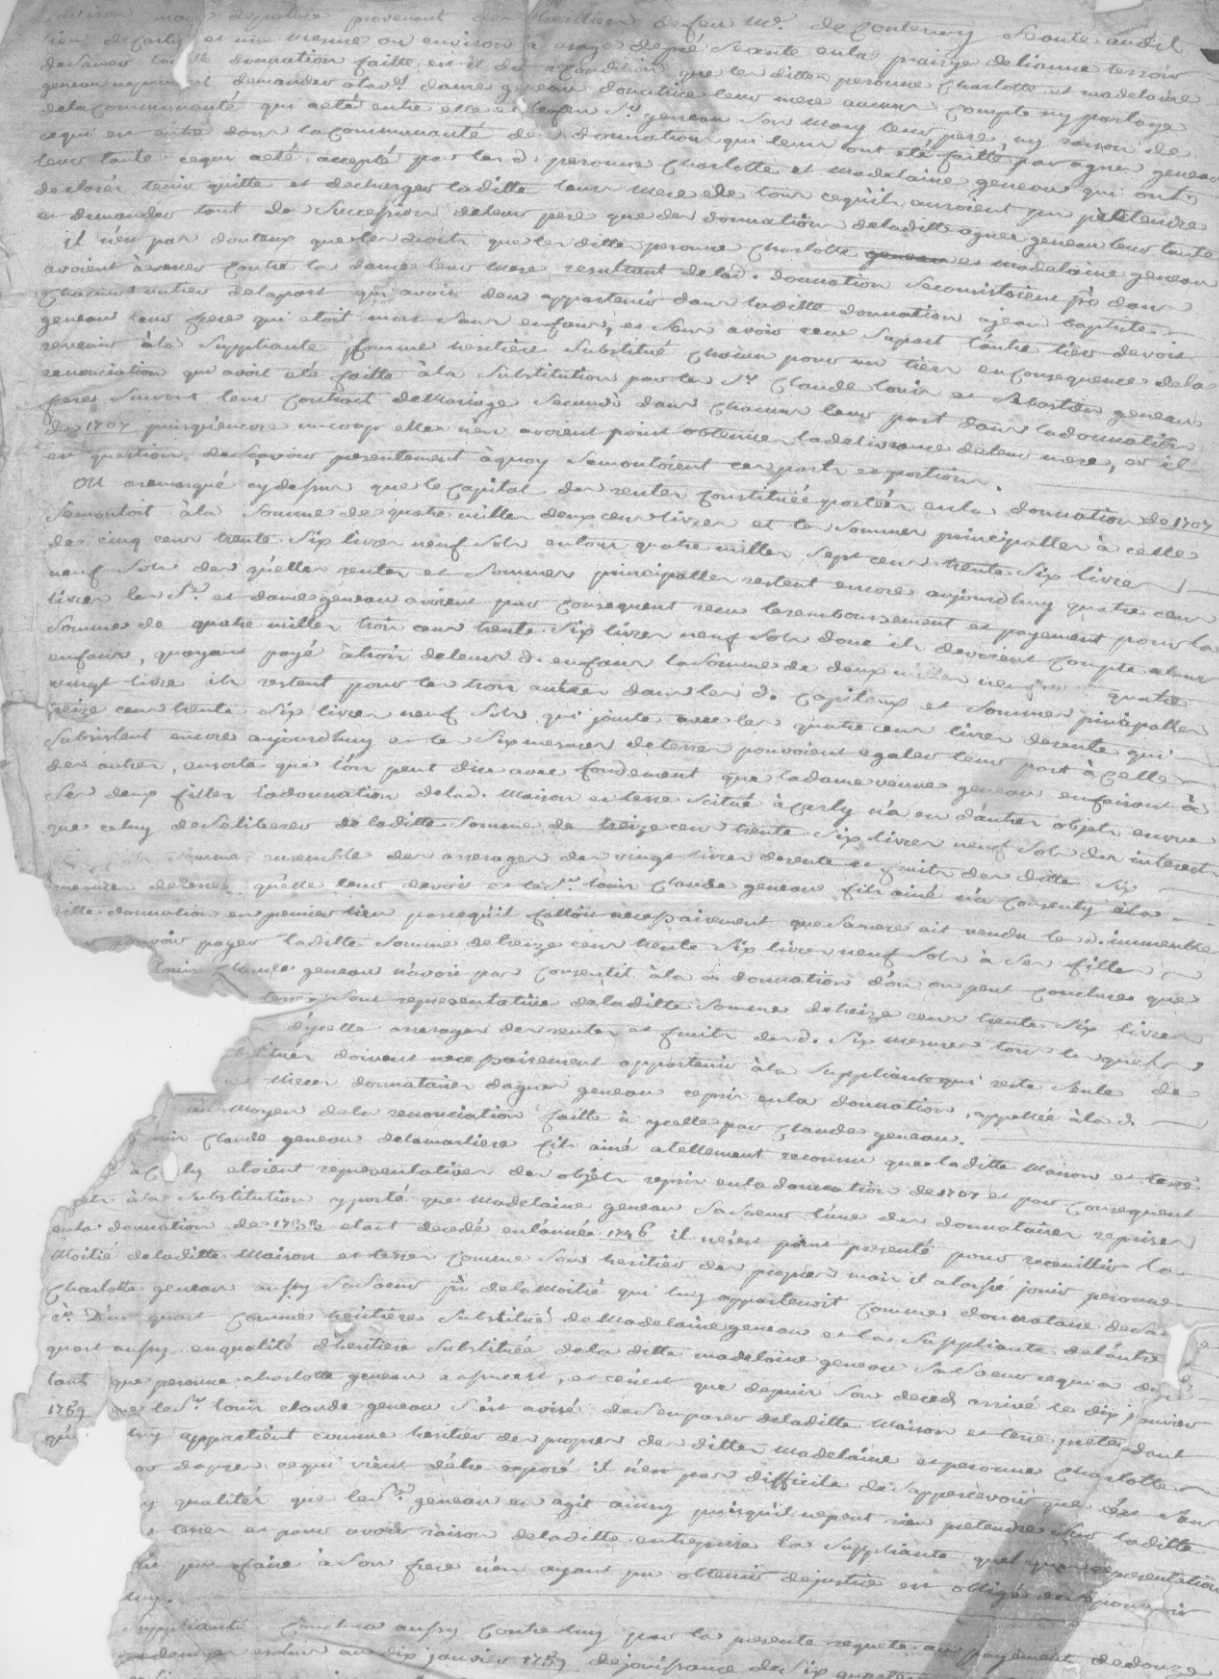 provenant des heritiers de feu Mr. de contenay seante audit
lieu de carly et une mesure ou environ a usage de pré seante enla prairie delianne terroir
de samer laditte donnation faitte et à condition que les dittes peronne Charlotte et madelaine
geneau ne pouront demander alad. dame geneau donatrice leur mere aucun compte ny partage
dela communauté qui aeté entre elle et lefeu Sr. geneau son mary leur pere, ny raison de
cequi est entré dans la communauté des donnations qui leur ont eté faitte par agnes geneau
leur tante cequi aeté accepté par lesd. peronne Charlotte et madelaine geneau qui ont
declaré tenir quitte et decharger laditte leur mere de tout cequ'il auroient pu prétendre
et demander tant de succession deleur pere que des donnations deladitte agnes geneau leur tante
il n'est pas douteux que les droits que les dittes peronne Charlotte geneau et madelaine geneau
avoient à exercer contre la dame leur mere resultant delad. donnation seconsistoient pr dans
chacune un tier delapart qui avoit deu appartenir dans laditte donnation a jean baptiste
geneau leur frere qui etoit mort sans enfans, et sans avoir receu sapart l'autre tier devoit
revenir à la suppliante comme heritière substitué chacun pour un tiers en consequence dela
renonciation qui avoit eté faitte à la substitution par les Sr. Claude louis et sebastien geneau
freres suivant leur contract demariage secundò dans chacune leur part dans la donnation
de 1707 puisqu'encore un coup elles n'en avoient point obtenue ladelivrance deleur mere, or il
est question de sçavoir presentement à quoy se montoient ces parts et portions.
On a remarqué cy dessus que le capital des rentes constituée portées enla donnation de 1707
se montoit à la somme de quatre milles deux cens livres et les sommes principalles à celle
de cinq cens trente six livres neuf sols en tout quatre milles sept cens trente six livres
neuf sols des quelles rentes et sommes principalles restent encore aujourdhuy quatre cens
livres les Sr. et dame geneau avoient par consequent receu le remboursement et payement pour la
somme de quatre milles trois cens trente six livres neuf sols donc ils devoient compte aleurs
enfans, quayant payé à trois de leurs d. enfans la somme de deux milles neuf quatre
vingt livre ils restent pour les trois autres dans les d. capitaux et sommes principalles
treize cens trente six livres neuf sols qui jointe avec les quatre cens livres derente qui
subsistent encore aujourdhuy et les six mesures de terres pouvoient egaler leur part à celle
des autres, ensorte que l'on peut dire avec fondement que la dame veuve geneau enfaisant à
ses deux filles la donnation delad. maison et terre scitué à carly n'a eu d'autres objets enveue
que celuy de se liberer de laditte somme de treize cens trente six livres neuf sols des interest
somme ensemble des arrerages des vingt livres derente et fruits des dittes six
mesures deterres qu'elle leur devoit et le Sr. louis Claude geneau fils ainé n'a consenty à la
ditte donnation en premier lieu parcequ'il falloit necessairement que sa mere ait vendu le d. immeuble
pour pouvoir payer laditte somme de treize cens trente six livres neuf sols à ses filles
louis Claude geneau n'avoit pas consentit à la d. donnation d'ou on peut conclure que
terres sont representative de laditte somme de treize cens trente six livres
d'ycelle arrerages des rentes et fruits des d. six mesures tous les quels
doivent necessairement appartenir à la suppliante qui reste seule de
nieces donnataires dagnes geneau repris enla donnation, appellée à la d.
au moyen dela renonciation faitte à ycelle par Claude geneau.
louis Claude geneau delamarliere fils ainé a tellement reconnu que laditte maison et terre
à carly etoient representatives des objets repris enla donnation de 1707 et par consequent
à la substitution y porté que Madelaine geneau sa soeur l'une des donnataires reprises
enla donnation de 1733 etant decedé en l'année 1746 il ne s'est point presenté pour receuillir la
Moitié deladitte Maison et terres comme son heritier des propres mais il a laissé jouir peronne
Charlotte geneau aussy sa soeur pr dela Moitié qui luy appartenoit comme donnataire desa
D'un quart comme heritiere substitué de Madelaine geneau et la suppliante del'autre
quart aussy enqualité d'heritiere substituée dela ditte madelaine geneau sa soeur cequi a duré
tant que peronne charlotte geneau a existé, et ce n'est que depuis son decès arrivé le dix janvier
1759 que le Sr. louis claude geneau s'est avisé de s'emparer deladitte Maison et terre pretendant
luy appartient comme heritier des propres des dittes Madelaine et peronne Charlotte
or dapres cequi vient d'etre exposé il n'est pas difficile de s'appercevoir que
qualités que le Sr. geneau en agit ainsy puisqu'il ne peut rien pretendre sur laditte
terre et pour avoir raison deladitte entreprise la suppliante quelques representations
pu faire à son frere n'en ayant pu obtenir de justice est obligée
luy.
Suppliante conclura aussy contre luy par la presente requete au payement de douze
dix janvier 1759 de jouissance de six quartiers